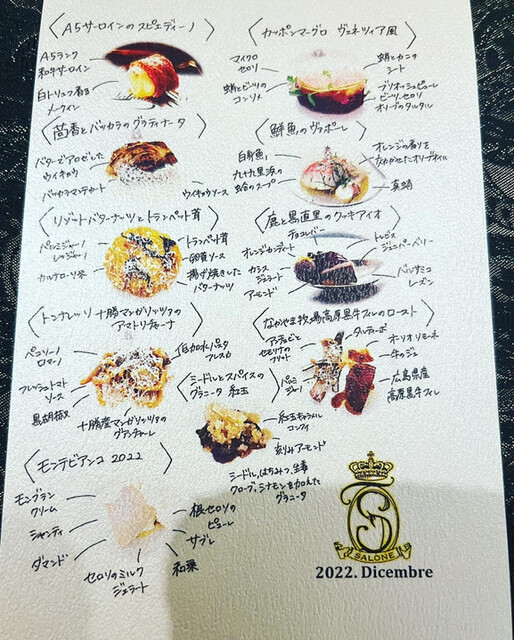 〈A5サーロインのスピエディーノ〉
A5ランク
和牛サーロイン
白トリュフ香る
メークイン
〈カッポンマーグロ ヴェネツィア風〉
マイクロ
セロリ
蛸とビーツの
コンソメ
蛸とカニの
シート
ブリオッシュピューレ
ビーツ、セロリ
オリーブのタルタル
〈茴香とバッカラのグラティナータ〉
バターでアロゼした
ウイキョウ
バッカラマンテカート
ウイキョウソース
〈鮮魚のヴァポーレ〉
白身魚
九十九里浜の
蛤のスープ
オレンジの香りを
オリーブオイル
真蛸
〈リゾット バターナッツとトランペット茸〉
パルミジャーノ
レッジャーノ
カルナローリ米
トランペット茸
卵黄ソース
揚げ焼きした
バターナッツ
〈鹿と黒直里のクッキアイオ〉
チョコレバー
オレンジキャンディート
カシス
ジェラート
アーモンド
トレビス
ジュニパーベリー
バルサミコ
レーズン
〈トンナレッリ 十勝マンガリッツァの
アマトリチャーナ〉
ペコリーノ
ロマーノ
フレッシュトマト
ソース
黒胡椒
低加水パスタ
フレスカ
十勝産マンガリッツァの
グアンチャーレ
〈なかやま牧場高原黒牛フィレのロースト〉
アンチョビと
セロリの
フリット
パルミ
ジャーノ
タルティーボ
オーリオリモーネ
牛のジュ
広島県産
高原黒牛フィレ
〈ミードルとスパイスの
グラニータ 紅玉〉
紅玉キャラメル
コンフィ
刻みアーモンド
ミードル、はちみつ、生姜
クローブ、シナモンを加えた
グラニータ
〈モンテビアンコ 2022〉
モンブラン
クリーム
シャンティ
ダマンド
セロリのミルク
ジェラート
根セロリの
ピューレ
サブレ
和栗
SALONE
2022. Dicembre